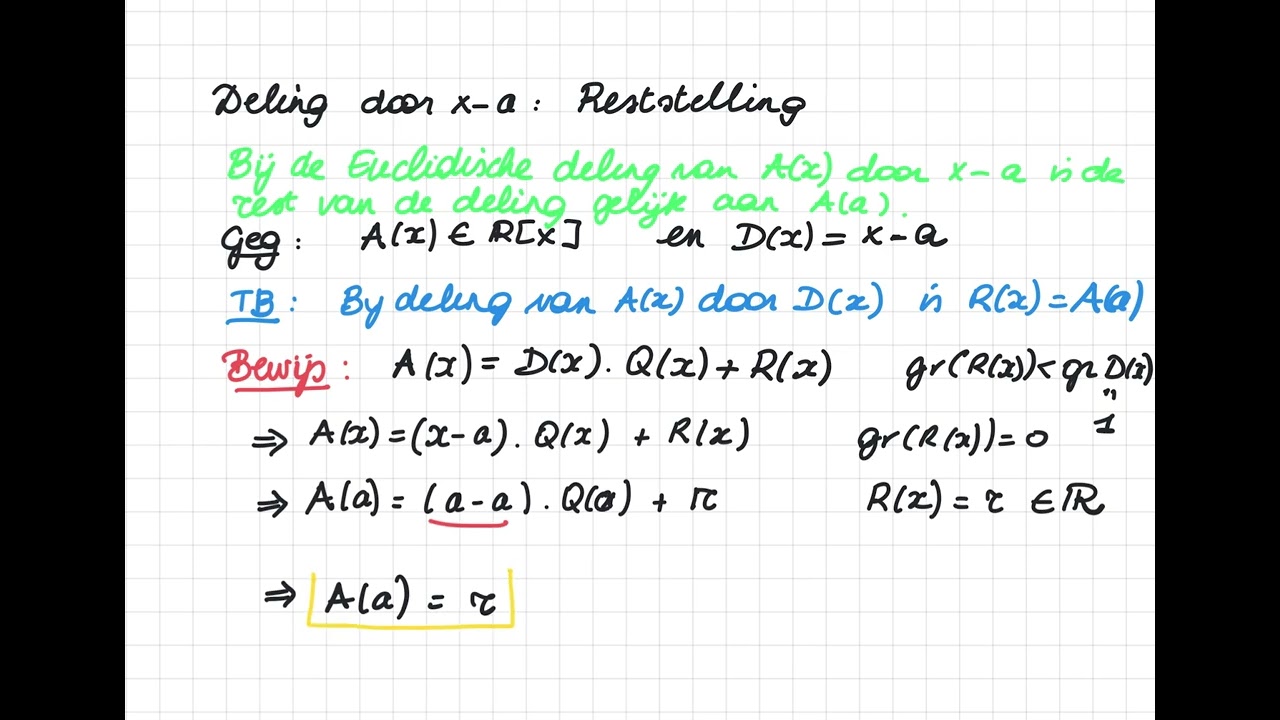 Deling door x-a : Reststelling
Bij de Euclidische deling van A(x) door x-a is de
rest van de deling gelijk aan A(a).
Geg : A(x) ∈ R[x] en D(x) = x-a
TB : By deling van A(x) door D(x) is R(x) = A(a)
Bewijs : A(x) = D(x) . Q(x) + R(x) gr(R(x)) < gr D(x)
"
⇒ A(x) = (x-a) . Q(x) + R(x) gr(R(x)) = 0 1
⇒ A(a) = (a-a) . Q(a) + r R(x) = r ∈ ℝ
⇒ A(a) = r